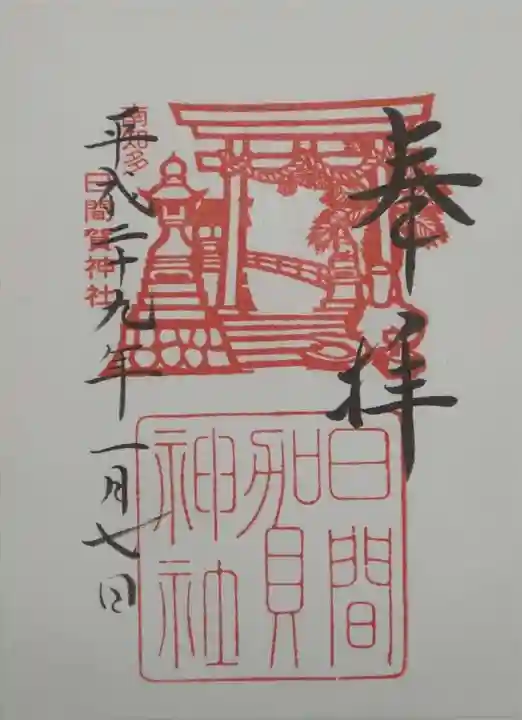 奉拝
南知多
日間賀神社
平成二十九年一月七日
日間
賀
神社